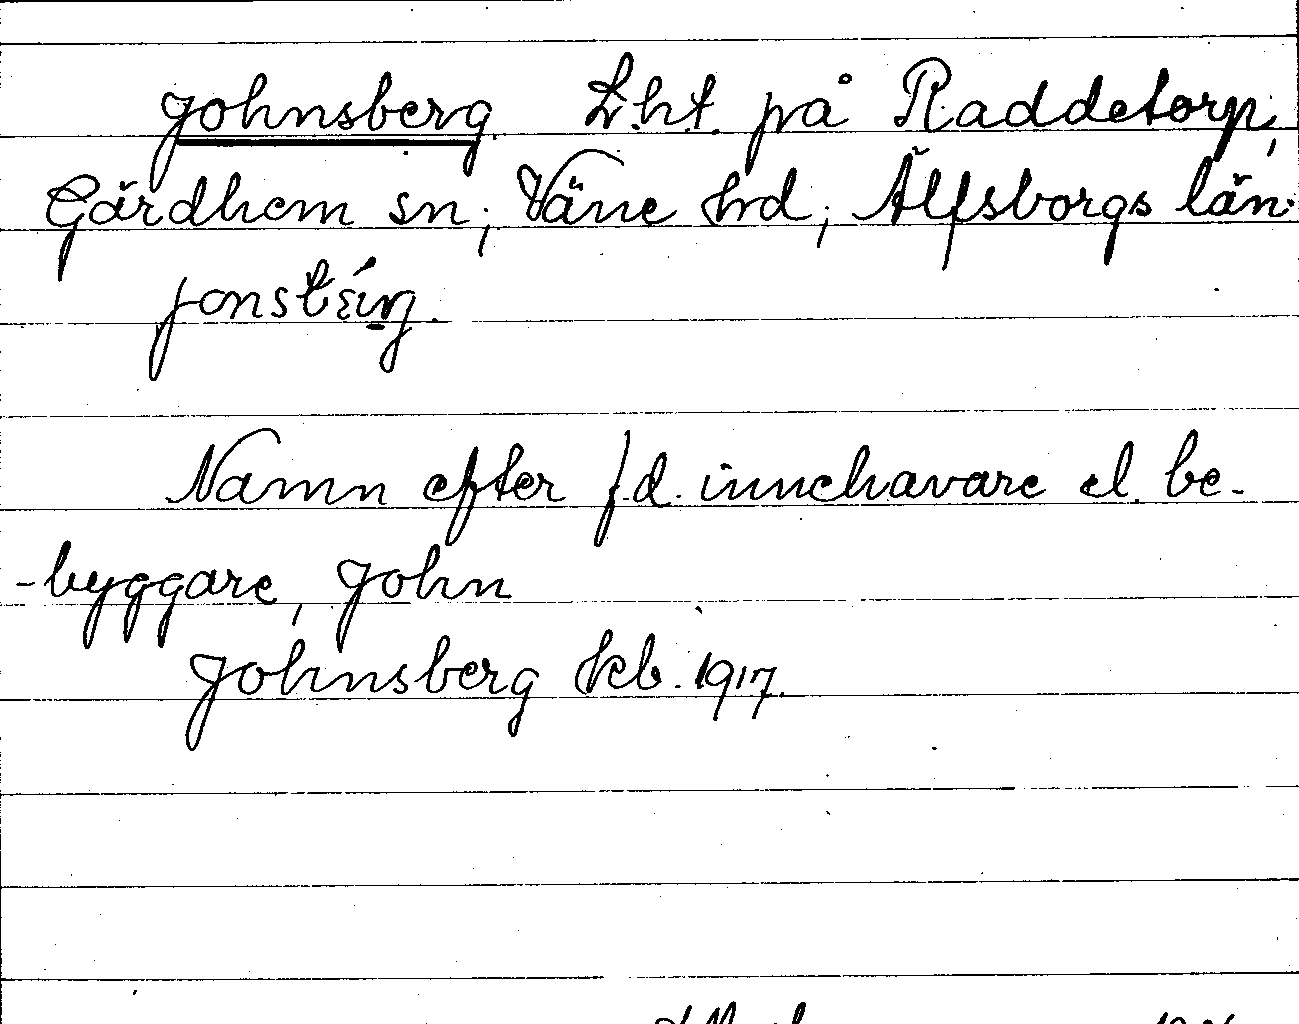 Johnsberg. L.h.t. på Raddetorp,
Gärdhem sn; Väne hrd; Älfsborgs län.
Namn efter f.d. innehavare el. be-
-byggare, John
Johnsberg kb. 1917.